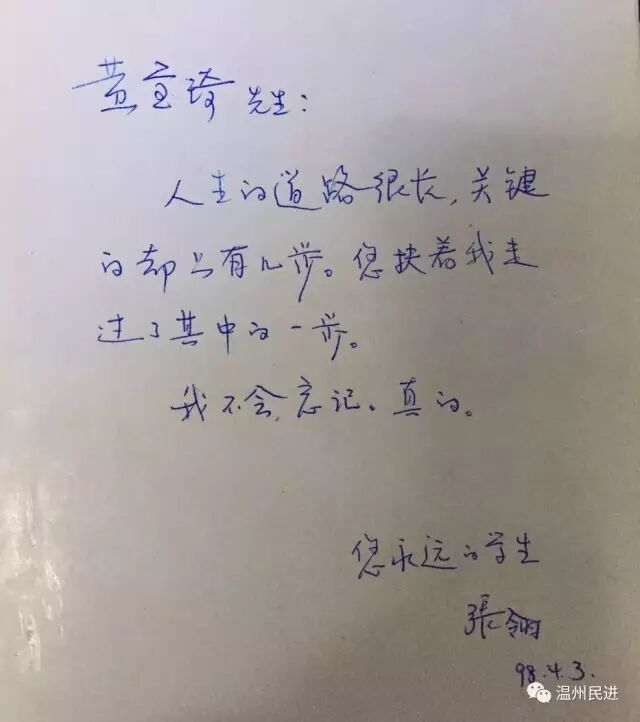 黄宝琦先生：
人生的道路很长，关键
的却只有几步。您扶着我走
过了其中的一步。
我不会忘记。真的。
您永远的学生
張翎
98.4.3.
温州民进